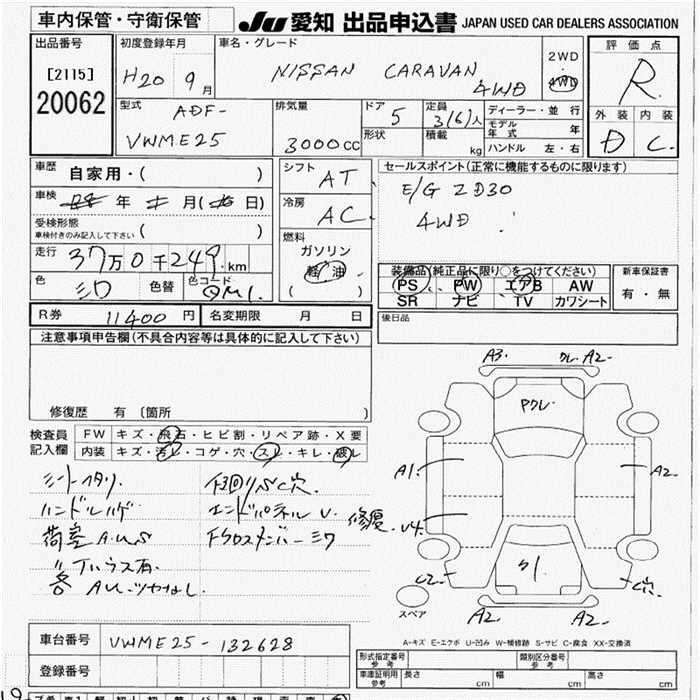 車内保管・守衛保管
JU 愛知 出品申込書 JAPAN USED CAR DEALERS ASSOCIATION
出品番号
[2115]
20062
初度登録年月
H20 9月
車名・グレード
NISSAN CARAVAN
4WD
2WD
4WD
評価点
R
外装 内装
D C
型式
ADF-
VWME25
排気量
3000cc
ドア
5
形状
定員
3(6)人
積載
kg
ディーラー・並行
モデル年式 年
ハンドル 左・右
車歴
自家用・( )
車検
年 月( 日)
受検形態
車検付きのみ記入して下さい ( )
走行 37万0千249 km
色 シロ 色替 色コード QM1
シフト AT
冷房 AC
燃料
ガソリン
軽油
( )
セールスポイント(正常に機能するものに限ります)
E/G ZD30
4WD
装備品(純正品に限り○をつけてください)
PS PW エアB AW
SR ナビ TV カワシート
新車保証書
有・無
R券 11400円 名変期限 月 日
後日品
注意事項申告欄(不具合内容等は具体的に記入して下さい)
修復歴 有 (箇所 )
検査員
記入欄
FW キズ・飛石・ヒビ割・リペア跡・X要
内装 キズ・汚レ・コゲ・穴・スレ・キレ・破レ
シートヘタリ
ハンドルハゲ
荷室A.U.S
〃
各 AU.ツヤなし
下回りSC穴
エンドパネルU
FクロスメンバーミワA3
クレ A2
Pクレ
A1
A2
修復 U4
C2
ワレ
C穴
A2
A2
スペア
A-キズ E-エクボ U-凹み W-補修跡 S-サビ C-腐食 XX-交換済
車台番号 VWME25-132628
登録番号
形式指定番号
参考
類別区分番号
参考
車庫証明用
参考
長さ cm 幅 cm 高さ cm